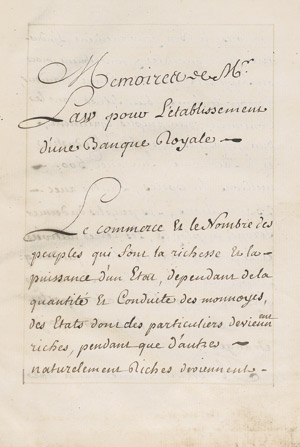 Memoire de Mr.
Law pour L'etablissement
d'une Banque Royale —
Le commerce Et le Nombre des
peuples qui sont la richesse Et la
puissance d'un Etat, dependant de la
quantité Et Conduite des monnoyes,
des Etats dont des particuliers deviennent
riches, pendant que d'autres —
naturelement Riches deviennent —